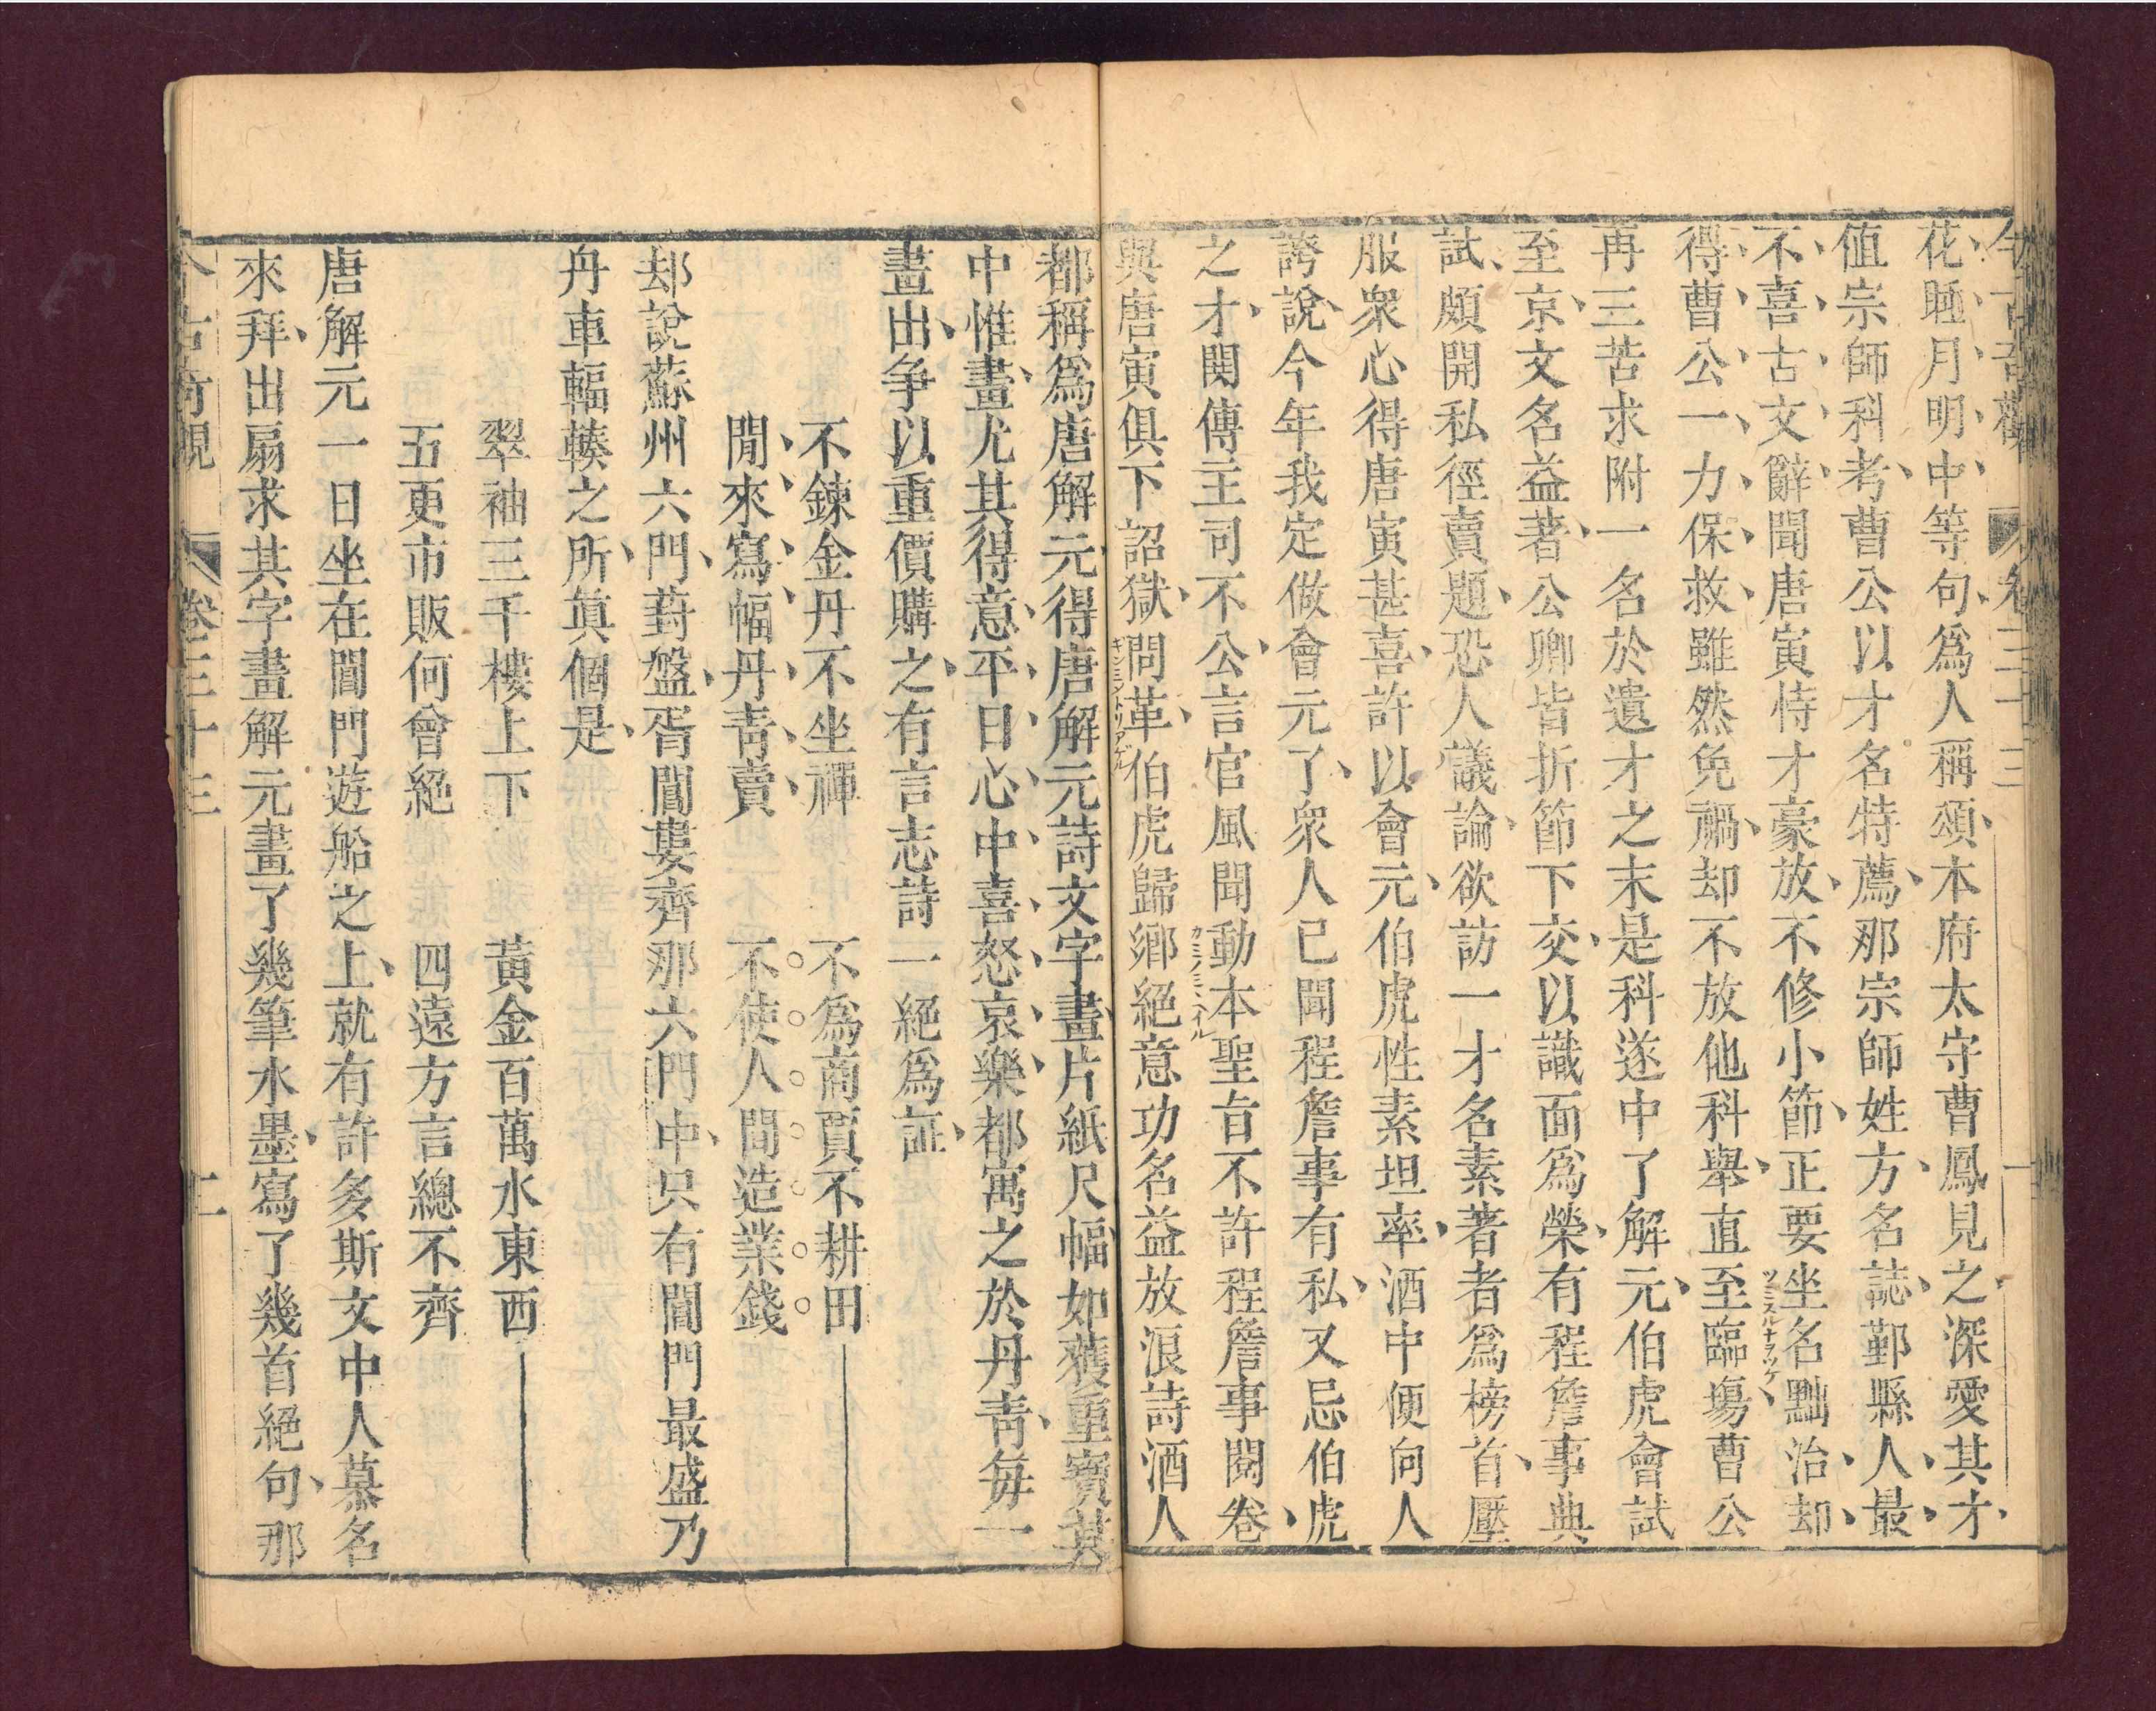 今古奇觀 卷三十三
花睡月明中等句爲人稱頌本府太守曹鳳見之深愛其才
值宗師科考曹公以才名特薦那宗師姓方名誌鄞縣人最
不喜古文辭聞唐寅恃才豪放不修小節正要坐名黜治却
ツミスルナヲツケ
得曹公一力保救雖然免禍却不放他科舉直至臨塲曹公
再三苦求附一名於遺才之末是科遂中了解元伯虎會試
至京文名益著公卿皆折節下交以識面爲榮有程詹事典
試頗開私徑賣題恐人議論欲訪一才名素著者爲榜首壓
服衆心得唐寅甚喜許以會元伯虎性素坦率酒中便向人
誇說今年我定做會元了衆人已聞程詹事有私又忌伯虎
之才閧傳主司不公言官風聞動本聖旨不許程詹事閱卷
與唐寅俱下詔獄問革伯虎歸鄉絕意功名益放浪詩酒人
都稱爲唐解元得唐解元詩文字畫片紙尺幅如獲重寶其
中惟畫尤其得意平日心中喜怒哀樂都寓之於丹靑每一
畫出爭以重價購之有言志詩一絕爲証
不鍊金丹不坐禪 不爲商賈不耕田
閒來寫幅丹靑賣 不使人間造業錢
却說蘇州六門葑盤胥閶婁齊那六門中只有閶門最盛乃
舟車輻輳之所眞個是
翠袖三千樓上下 黃金百萬水東西
五更市販何曾絕 四遠方言總不齊
唐解元一日坐在閶門遊船之上就有許多斯文中人慕名
來拜出扇求其字畫解元畫了幾筆水墨寫了幾首絕句那
今古奇觀 卷三十三 二